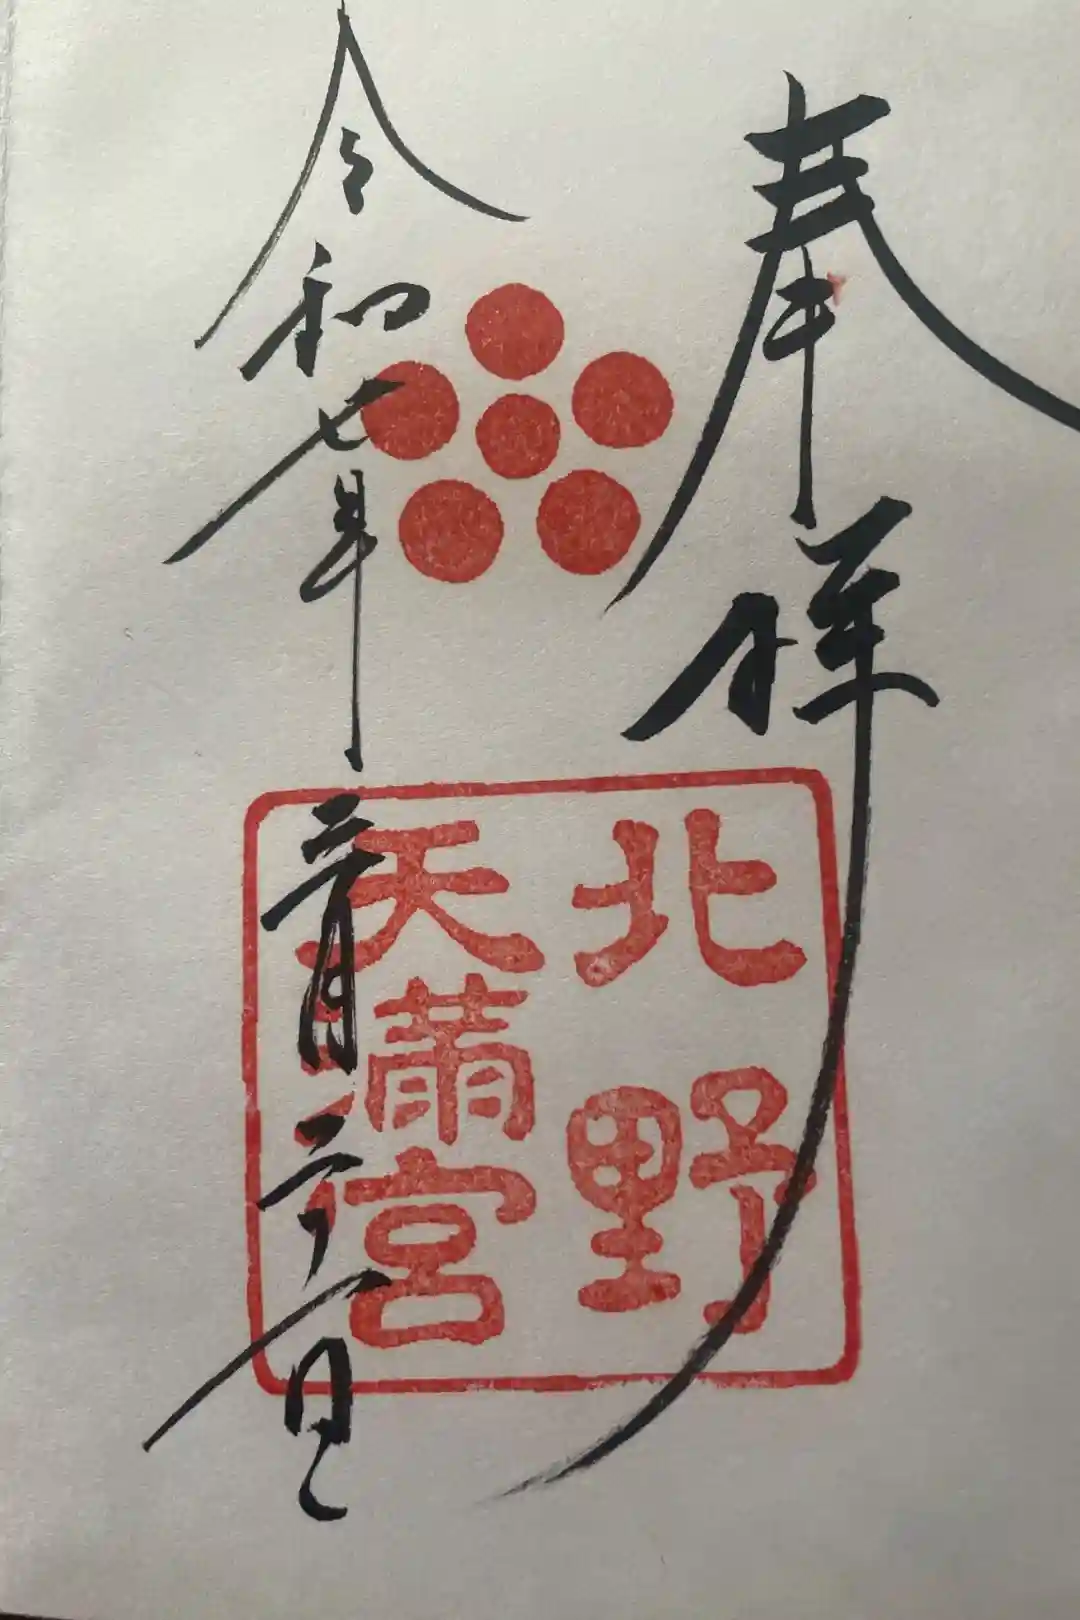 奉拝
北野
天滿宮
令和七年三月二十一日